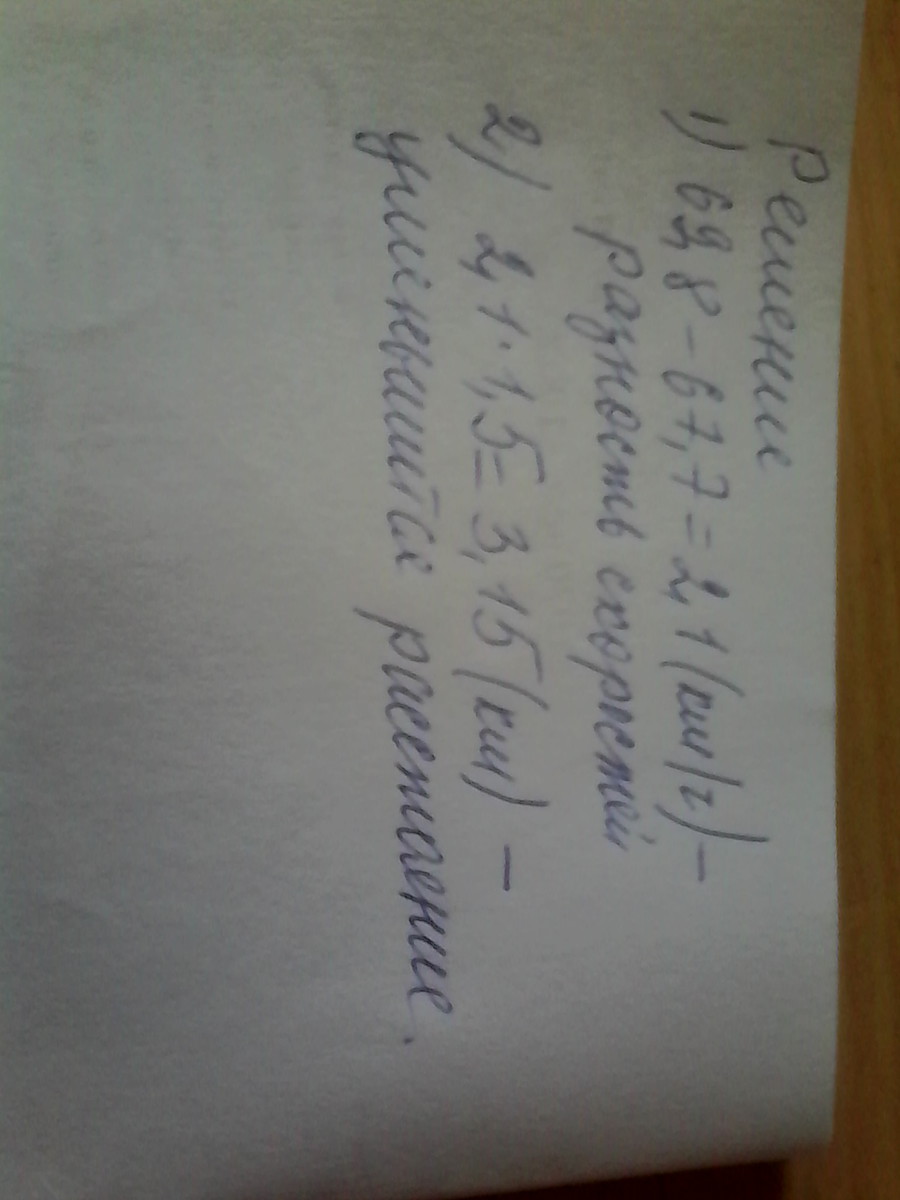 Решение
1) 69,8 - 67,7 = 2,1 (км/ч) -
разность скоростей
2) 2,1 · 1,5 = 3,15 (км) -
уменьшится расстояние.